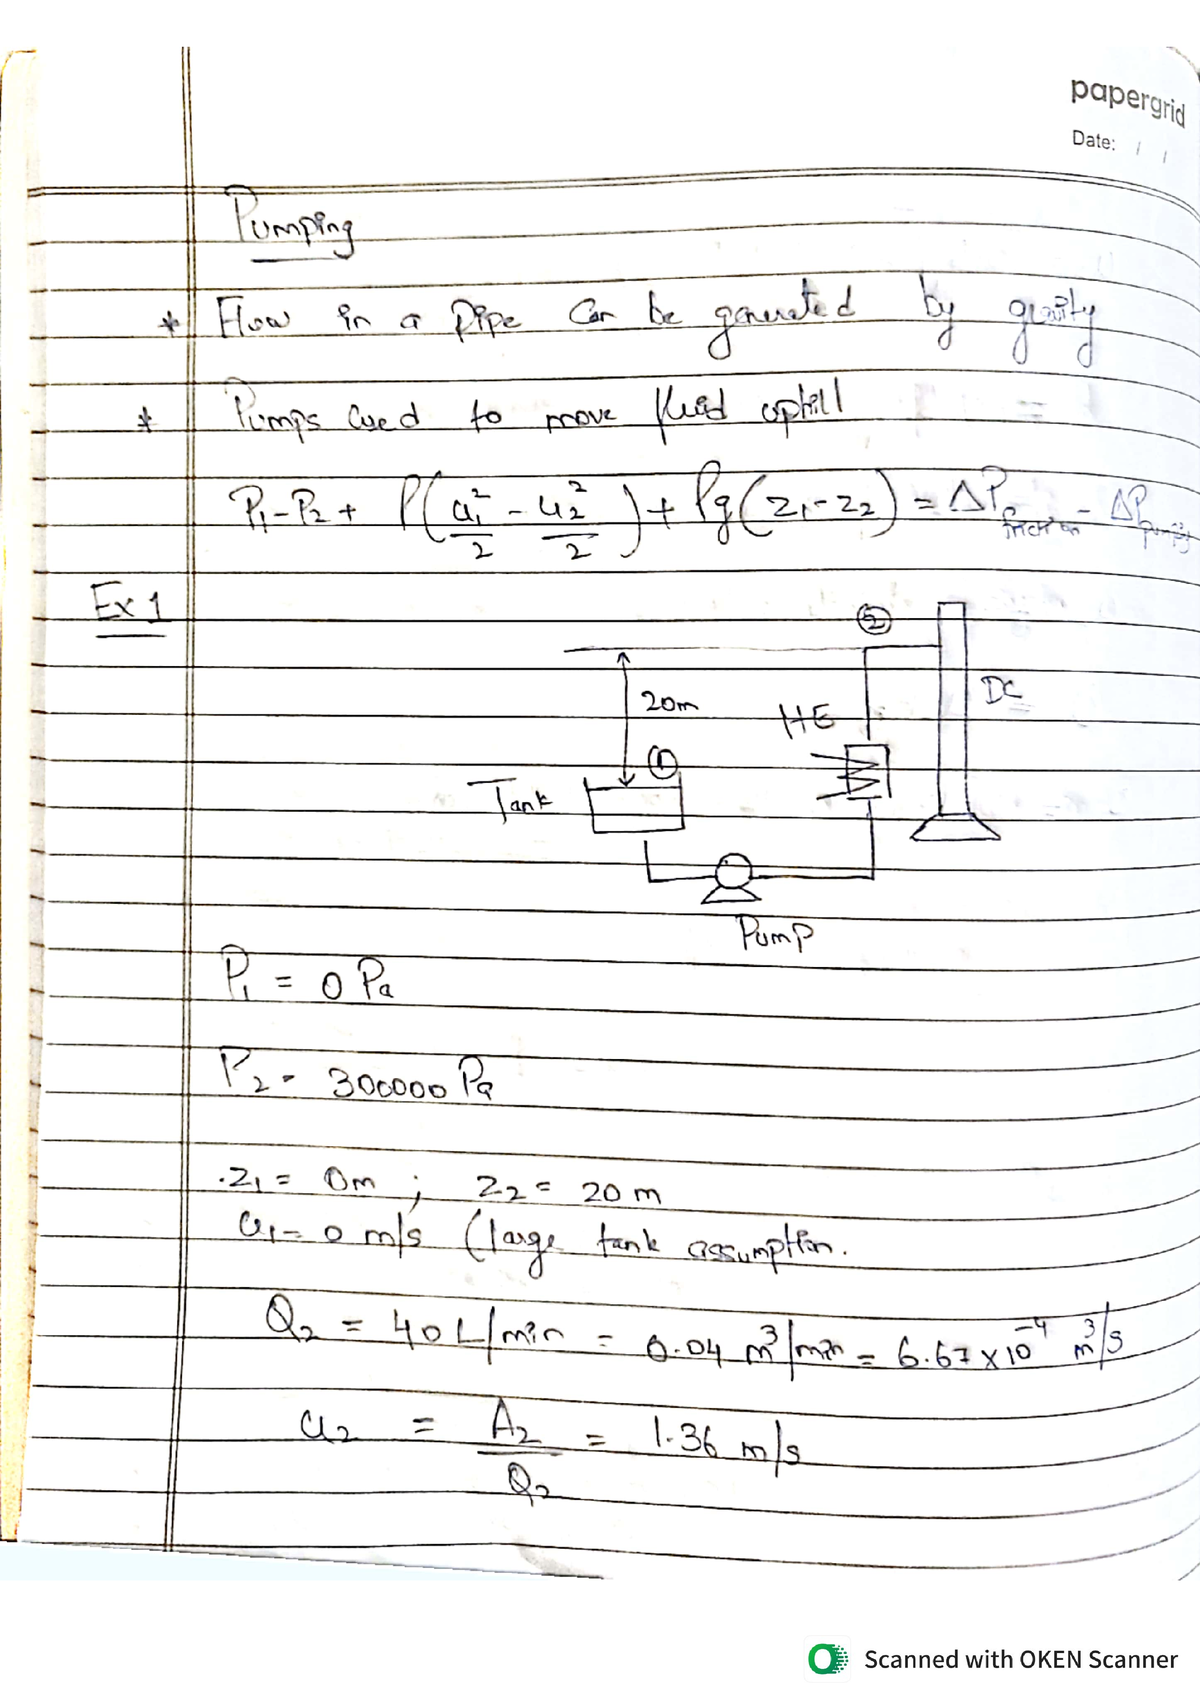 papergrid
Date: / /
Pumping
* Flow in a pipe can be generated by gravity
* Pumps used to move fluid uphill
P₁-P₂ + ρ(u₁²/2 - u₂²/2) + ρg(z₁-z₂) = ΔP friction - ΔP pump
Ex 1
②
20m
HE
DC
①
Tank
Pump
P₁ = 0 Pa
P₂ = 300000 Pa
z₁ = 0m ; z₂ = 20 m
u₁ = 0 m/s (large tank assumption.
Q₂ = 40 L/min = 0.04 m³/min = 6.67 x 10⁻⁴ m³/s
u₂ = A₂/Q₂ = 1.36 m/s
Scanned with OKEN Scanner